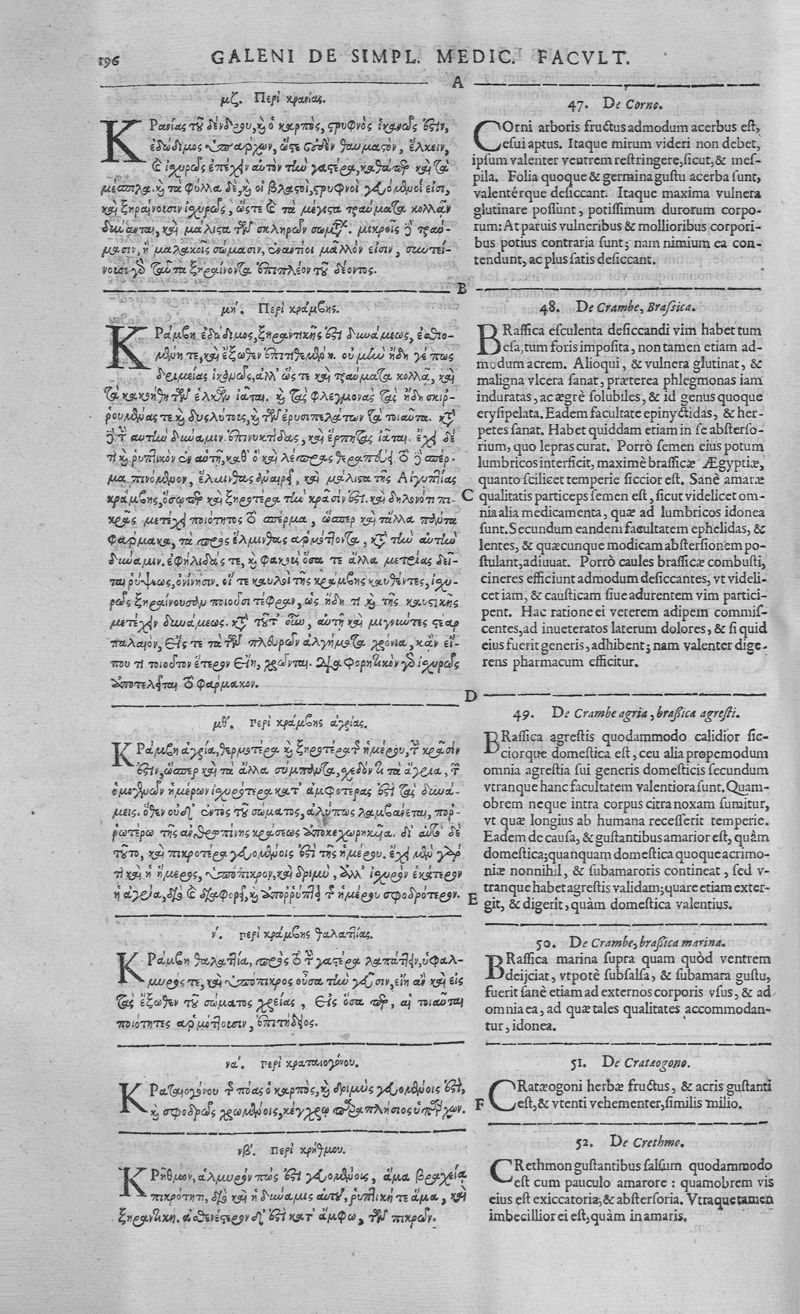 196
GALENI DE SIMPL. MEDIC. FACVLT.
A
μζ. Περὶ κρανίας.
ΚΡανίας τοῦ δένδρου, καὶ ὁ καρπὸς, στρυφνὸς ἱκανῶς ἐστὶν,
ἐδώδιμος ὑπάρχων, ὥστε οὐδὲν θαυμαστὸν,
ἰσχυρῶς ἐπέχειν αὐτὸν τὴν γαστέρα, καθάπερ καὶ τὰ
μέσπιλα. καὶ τὰ φύλλα δὲ, καὶ οἱ βλαστοὶ, στρυφνοὶ γευομένοις εἰσι,
καὶ ξηραίνουσιν ἰσχυρῶς, ὥστε καὶ τὰ μέγιστα τραύματα κολλᾶν
δύνανται, καὶ μάλιστα τῶν σκληρῶν σωμάτων. μικροῖς δὲ τραύ-
μασιν, ἢ μαλακοῖς σώμασιν, ἐναντίοι μᾶλλόν εἰσιν,
ταῦτα ξηραίνοντα ἐπιπλέον τοῦ δέοντος.
B
μη. Περὶ κράμβης.
ΚΡάμβη ἐδώδιμος, ξηραντικῆς ἐστὶ δυνάμεως, ἐσθιο-
μένη τε, καὶ ἔξωθεν ἐπιτιθεμένη. οὐ μὴν ἤδη γέ πως
δριμείας ἱκανῶς, ἀλλ' ὥς τε καὶ τραύματα κολλᾶ, καὶ
τὰ κακοήθη τῶν ἑλκῶν ἰᾶται. καὶ τὰς φλεγμονὰς τὰς ἤδη σκιρ-
ρουμένας τε καὶ δυσλύτους, καὶ τῶν ἐρυσιπελάτων τὰ τοιαῦτα. κατὰ
δὲ τὴν αὐτὴν δύναμιν, ἐπινυκτίδας, καὶ ἕρπητας ἰᾶται. ἔχει δέ
τι καὶ ῥυπτικὸν ἐν αὑτῇ, καθ' ὃ καὶ λέπρας θεραπεύει. τὸ σπέρ-
μα πινόμενον, ἕλμινθας ἀναιρεῖ, καὶ μάλιστα τῆς Αἰγυπτίας
κράμβης, ὅσῳπερ καὶ ξηροτέρα τὴν κρᾶσίν ἐστι. καὶ δηλονότι πι-
C
κρᾶς μετέχει ποιότητος τὸ σπέρμα, ὥσπερ καὶ τἄλλα πάντα
φάρμακα, τὰ πρὸς ἕλμινθας ἁρμόττοντα, κατὰ τὴν αὐτὴν
δύναμιν. ἐφήλιδάς τε, καὶ φακοὺς ὅσα τε ἄλλα μετρίας δεῖ-
ται ῥύψεως, ὀνίνησιν. οἵ τε καυλοὶ τῆς κράμβης καυθέντες, ἰσχυ-
ρῶς ξηραίνουσαν ποιοῦσι τέφραν, ὡς ἤδη τι καὶ τῆς καυστικῆς
μετέχειν δυνάμεως. κατὰ τοῦτ' οὖν, αὐτῇ καὶ μιγνύντες στέαρ
παλαιὸν, εἴς τε τὰ τῶν πλευρῶν ἀλγήματα χρόνια, κἂν εἴ-
που τι τοιοῦτον ἕτερον εἴη, χρῶνται. διαφορητικὸν γὰρ ἰσχυρῶς
ἀποτελεῖται τὸ φάρμακον.
D
μθ. Περὶ κράμβης ἀγρίας.
ΚΡάμβη ἀγρία, θερμοτέρα καὶ ξηροτέρα τῆς ἡμέρου, τὴν κρᾶσίν
ἐστιν, ὥσπερ καὶ τὰ ἄλλα σύμπαντα, σχεδόν τι τὰ ἄγρια, τῶν
ὁμογενῶν ἡμέρων ἰσχυρότερα κατ' ἀμφοτέρας ἐστὶ τὰς δυνά-
μεις. ὅθεν οὐδ' ἐντὸς τοῦ σώματος, ἀλύπως λαμβάνεται, ποῤ-
ρωτέρω τῆς ἀνθρωπίνης κράσεως ἀποκεχωρηκυῖα. δι' αὐτὸ δὲ
τοῦτο, καὶ πικροτέρα γευομένοις ἐστὶ τῆς ἡμέρου. ἔχει μὲν γάρ
τι καὶ ἡ ἥμερος, ὑπόπικρον, καὶ δριμὺ, ἀλλ' ἰσχυρὸν ἑκάτερον
E
ἡ ἀγρία, διὸ καὶ διαφορεῖ, καὶ ἀποῤῥύπτει τῆς ἡμέρου σφοδρότερον.
ν. Περὶ κράμβης θαλαττίας.
ΚΡάμβη θαλαττία, πρὸς τὸ τὴν γαστέρα λαπάττειν, ὑφαλ-
μυρός τε, καὶ ὑπόπικρος οὖσα τὴν γεῦσιν, εἴη ἂν καὶ εἰς
τὰς ἔξωθεν τοῦ σώματος χρείας, εἰς ὅσα περ, αἱ τοιαῦται
ποιότητες ἁρμόττουσιν, ἐπιτήδειος.
να. Περὶ κραταιογόνου.
ΚΡαταιογόνου τῆς πόας ὁ καρπὸς, καὶ δριμὺς γευομένοις ἐστὶ,
F
καὶ σφοδρῶς χρωμένοις, κέγχρῳ παραπλήσιος ὑπάρχων.
νβ. Περὶ κρήθμου.
ΚΡῆθμον, ἁλμυρόν πως ἐστὶ γευομένοις, ἅμα βραχείᾳ
πικρότητι, διὸ καὶ ἡ δύναμις αὐτοῦ, ῥυπτική τε ἅμα, καὶ
ξηραντική. ἀσθενέστερον δ' ἐστὶ κατ' ἄμφω, τῶν πικρῶν.
47. De Corno.
COrni arboris fructus admodum acerbus est,
esui aptus. Itaque mirum videri non debet,
ipsum valenter ventrem restringere, sicut, & mes-
pila. Folia quoque & germina gustu acerba sunt,
valentérque desiccant. Itaque maxima vulnera
glutinare possunt, potissimum durorum corpo-
rum: At paruis vulneribus & mollioribus corpori-
bus potius contraria sunt; nam nimium ea con-
tendunt, ac plus satis desiccant.
48. De Crambe, Brassica.
BRassica esculenta desiccandi vim habet tum
esa, tum foris imposita, non tamen etiam ad-
modum acrem. Alioqui, & vulnera glutinat, &
maligna vlcera sanat, præterea phlegmonas iam
induratas, ac ægrè solubiles, & id genus quoque
erysipelata. Eadem facultate epinyctidas, & her-
petes sanat. Habet quiddam etiam in se abstersо-
rium, quo lepras curat. Porrò semen eius potum
lumbricos interficit, maximè brassicæ Ægyptiæ,
quanto scilicet temperie siccior est. Sanè amaræ
qualitatis particeps semen est, sicut videlicet om-
nia alia medicamenta, quæ ad lumbricos idonea
sunt. Secundum eandem facultatem ephelidas, &
lentes, & quæcunque modicam abstersionem po-
stulant, adiuuat. Porrò caules brassicæ combusti,
cineres efficiunt admodum desiccantes, vt videli-
cet iam, & causticam siue adurentem vim partici-
pent. Hac ratione ei veterem adipem commis-
centes, ad inueteratos laterum dolores, & si quid
eius fuerit generis, adhibent; nam valenter dige-
rens pharmacum efficitur.
49. De Crambe agria, brassica agresti.
BRassica agrestis quodammodo calidior sic-
ciorque domestica est, ceu alia propemodum
omnia agrestia sui generis domesticis secundum
vtranque hanc facultatem valentiora sunt. Quam-
obrem neque intra corpus citra noxam sumitur,
vt quæ longius ab humana recesserit temperie.
Eadem de causa, & gustantibus amarior est, quàm
domestica; quanquam domestica quoque acrimo-
niæ nonnihil, & subamaroris contineat, sed v-
tranque habet agrestis validam; quare etiam exter-
git, & digerit, quàm domestica valentius.
50. De Crambe, brassica marina.
BRassica marina supra quam quòd ventrem
deijciat, vtpotè subsalsa, & subamara gustu,
fuerit sanè etiam ad externos corporis vsus, & ad
omnia ea, ad quæ tales qualitates accommodan-
tur, idonea.
51. De Cratæogono.
CRatæogoni herbæ fructus, & acris gustanti
est, & vtenti vehementer, similis milio.
52. De Crethmo.
CRethmon gustantibus salsum quodammodo
est cum pauculo amarore: quamobrem vis
eius est exiccatoria, & abstersoria. Vtraque tamen
imbecillior ei est, quàm in amaris.